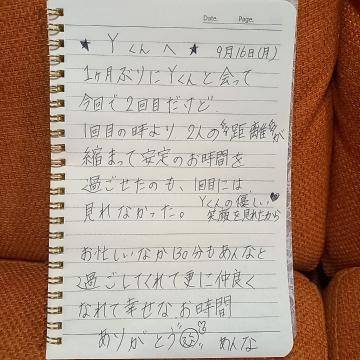 Date. Page.
★ Yくんへ ★ 9月16日(月)
1ヶ月ぶりにYくんと会って
今回で2回目だけど
1回目の時より2人の距離が
縮まって安定のお時間を
過ごせたのも、1回目には
見れなかった。Yくんの優しい♥
笑顔を見れたから
お忙しいなか130分もあんなと
過ごしてくれて更に仲良く
なれて幸せなお時間
ありがとう
あんな